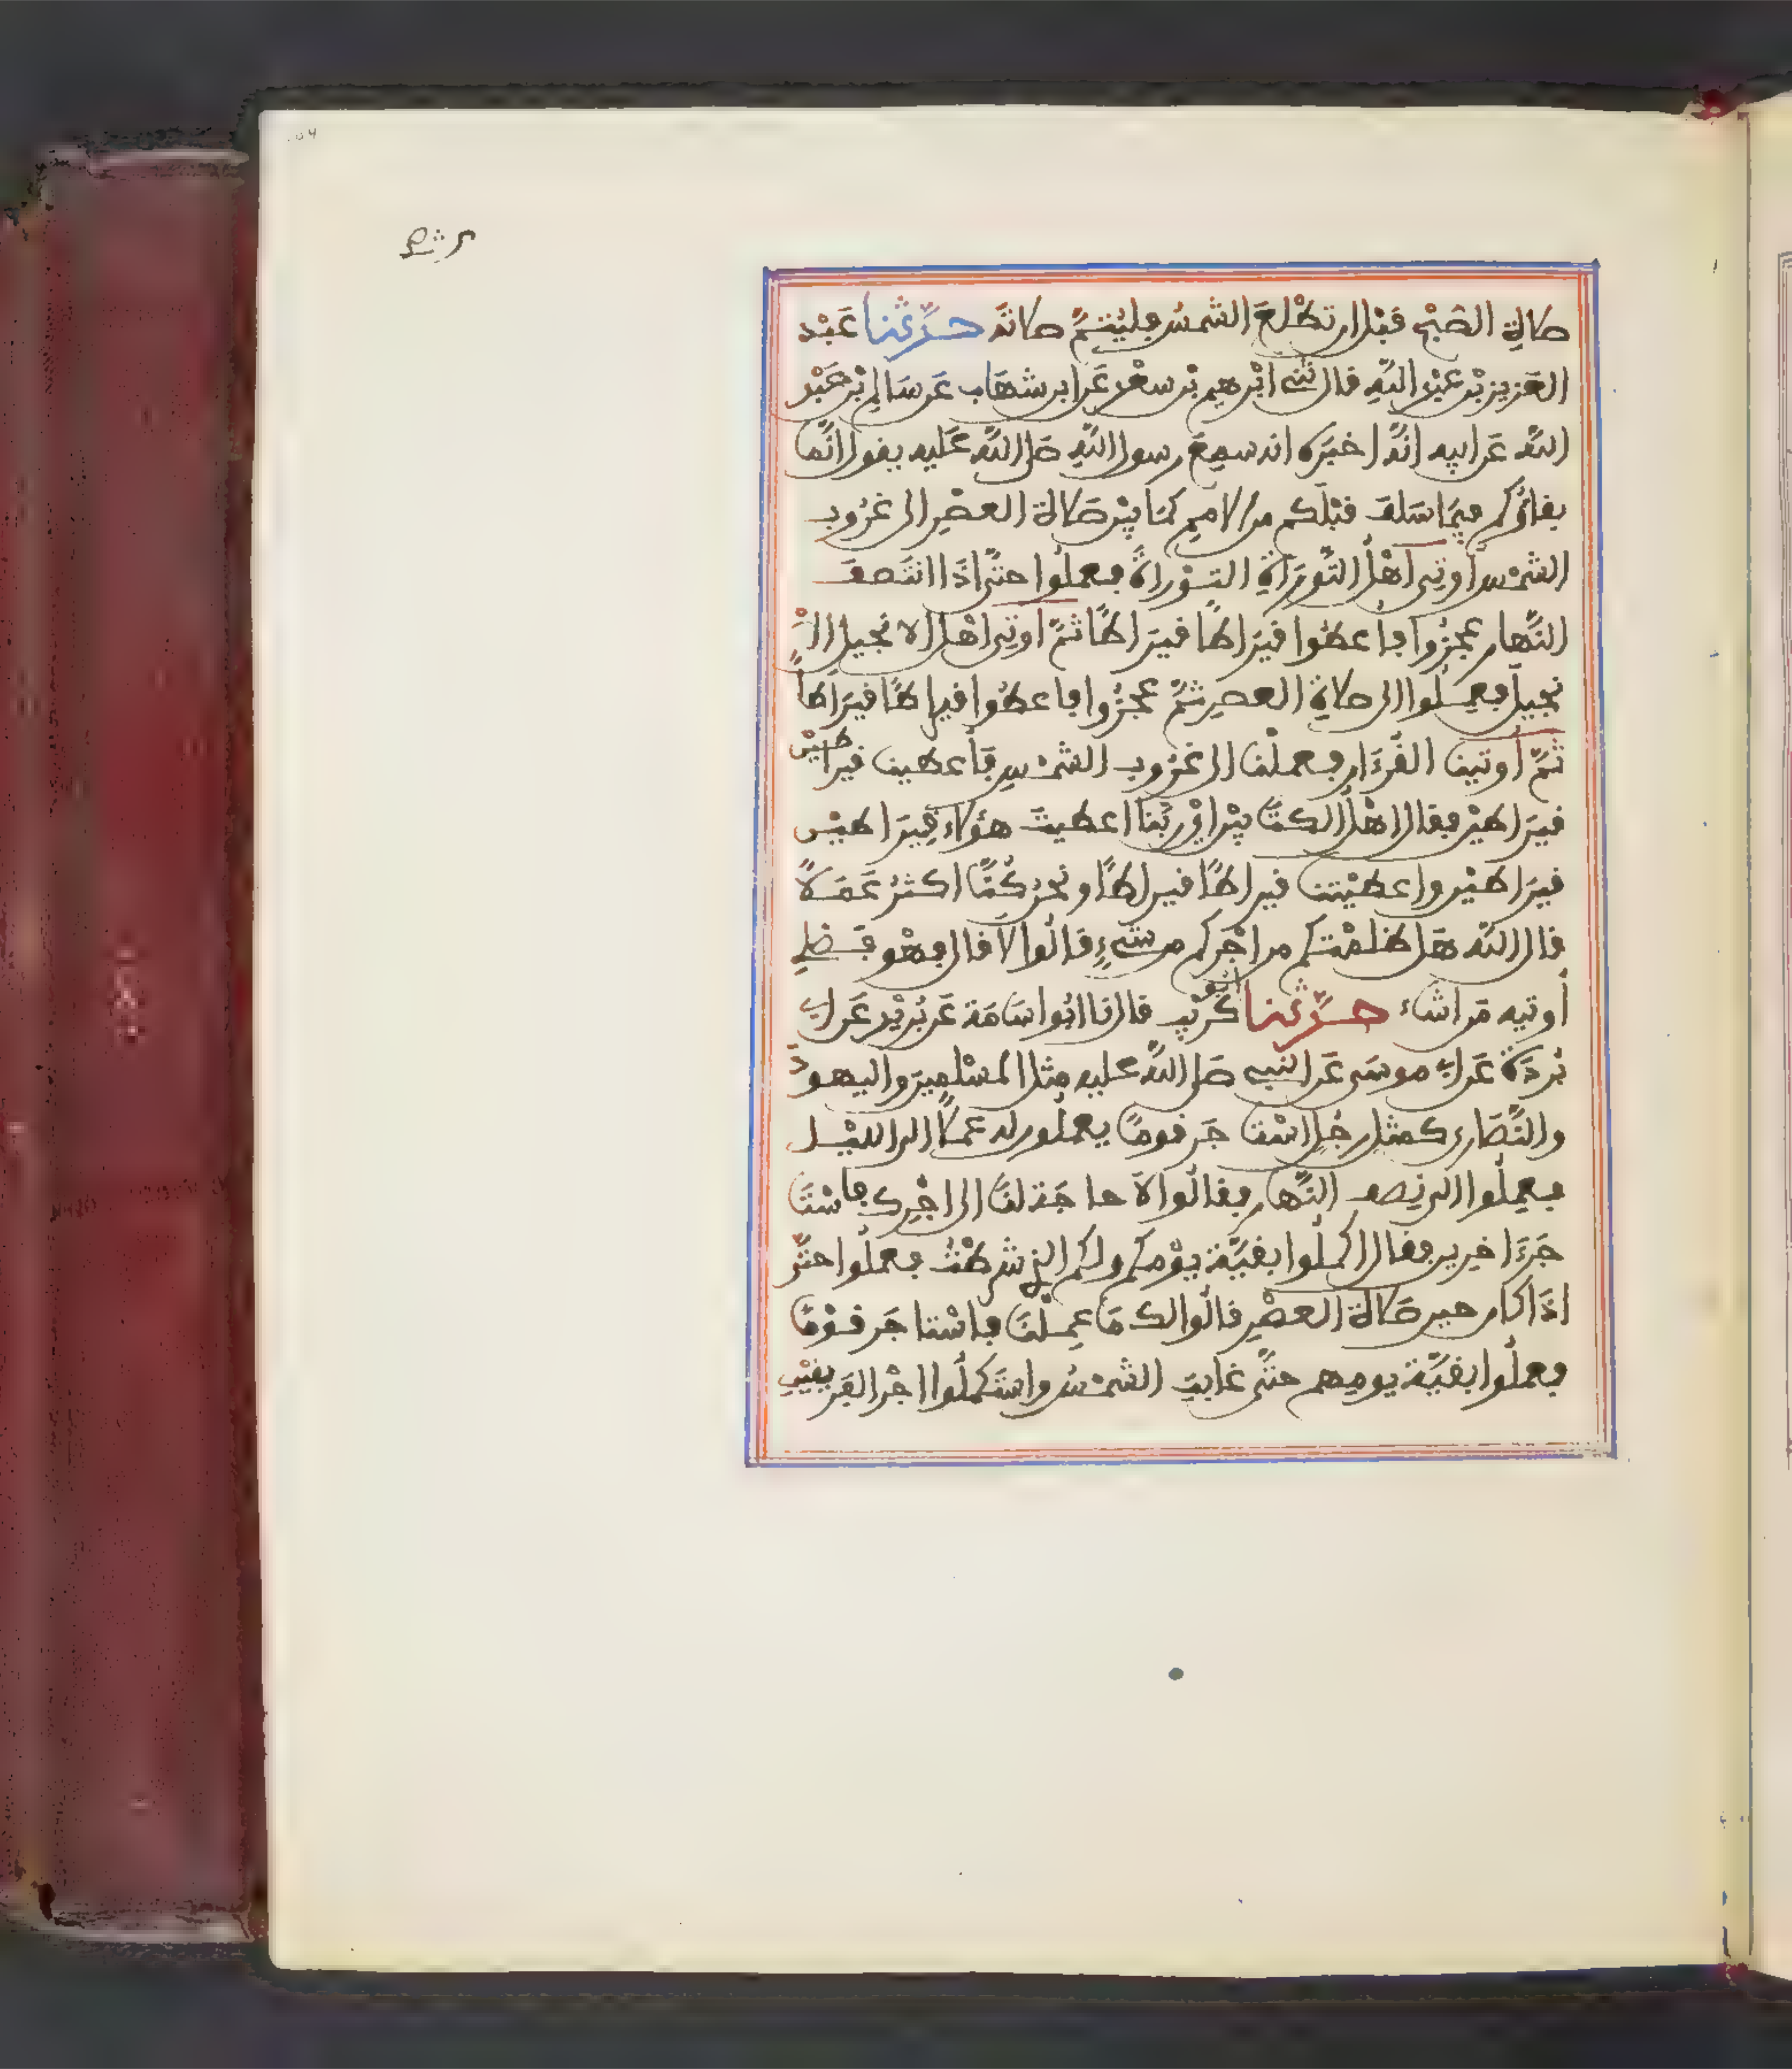 صلاة الصبح قبل ان تطلع الشمس فليتمّ صلاته حدّثنا عبد
العزيز بن عبد الله قال ثني ابرهيم بن سعد عن ابن شهاب عن سالم بن عبد
الله عن ابيه انّه اخبره انه سمع رسول الله صلى الله عليه يقول انّما
بقاؤكم فيما سلف قبلكم من الامم كما بين صلاة العصر الى غروب
الشمس اوتي اهل التّورية التورية فعملوا حتّى اذا انتصف
النّهار عجزوا فأعطوا قيراطا قيراطا ثمّ اوتي اهل الانجيل الا
نجيل فعملوا الى صلاة العصر ثمّ عجزوا فاعطوا قيراطا قيراطا
ثمّ أوتينا القرءان فعملنا الى غروب الشمس فأعطينا قيراطين
قيراطين فقال اهل الكتابين اي ربّنا اعطيت هؤلاء قيراطين
قيراطين واعطيتنا قيراطا قيراطا ونحن كنّا اكثر عملا
قال الله هل ظلمتكم من اجركم من شيء قالوا لا قال فهو فضلي
أوتيه من اشاء حدّثنا ابو كريب قال نا ابو اسامة عن بريد عن ابي
بردة عن ابي موسى عن النبي صلى الله عليه مثل المسلمين واليهود
والنّصارى كمثل رجل استاجر قوما يعملون له عملا الى الليل
فعملوا الى نصف النّهار فقالوا لا حاجة لنا الى اجرك فاستا
جر ءاخرين فقال اكملوا بقيّة يومكم ولكم الذي شرطت فعملوا حتّى
اذا كان حين صلاة العصر قالوا لك ما عملنا فاستاجر قوما
فعملوا بقيّة يومهم حتّى غابت الشمس واستكملوا اجر الفريقين